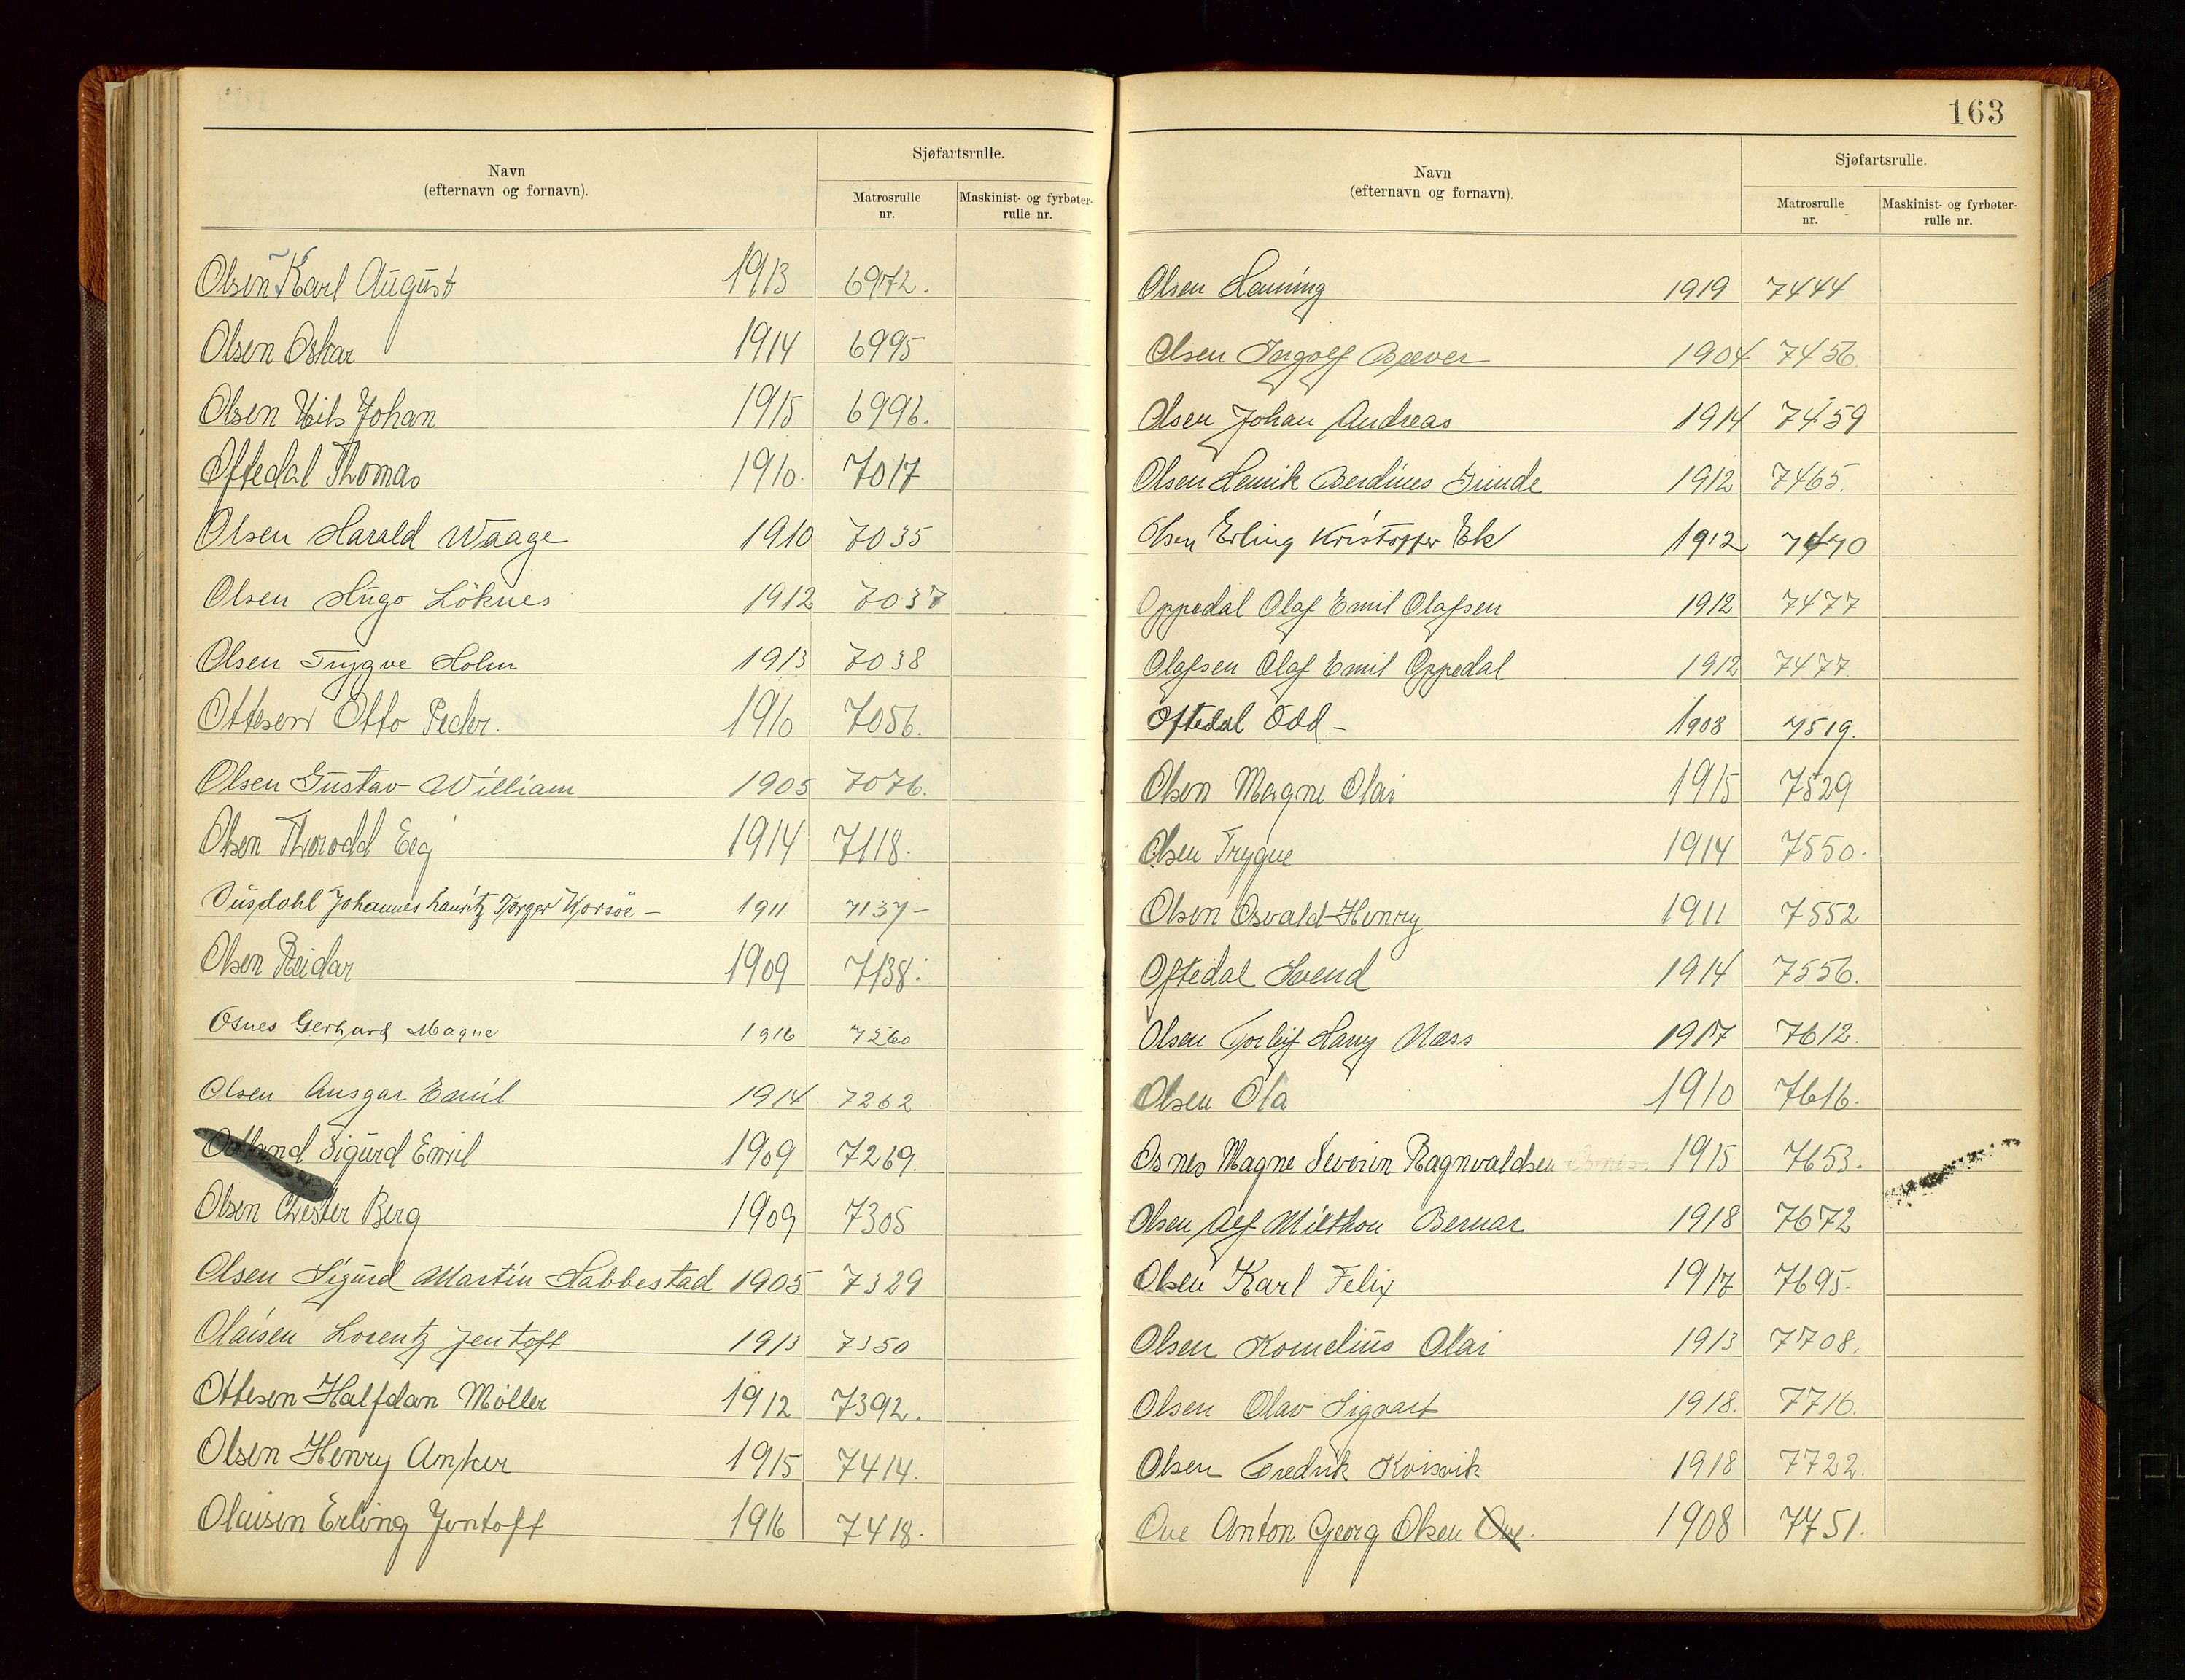 Navn
(efternavn og fornavn).
Sjøfartsrulle.
Matrosrulle nr.
Maskinist- og fyrbøter-rulle nr.
Olsen Karl August 1913 6972.
Olsen Oskar 1914 6995
Olsen Nils Johan 1915 6996.
Oftedal Thomas 1910. 7017
Olsen Harald Waage 1910 7035
Olsen Hugo Löknes 1912 7037
Olsen Trygve Holm 1913 7038
Ottesen Otto Peder. 1910 7056.
Olsen Gustav William 1905 7076.
Olsen Thorodd Eeg 1914 7118.
Johannes Lauritz Torger 1911. 7137-
Olsen Reidar 1909 7138.
Osnes Gerhard Magne 1916 7260
Olsen Ansgar Emil 1914 7262
Sigurd Emil 1909 7269.
Olsen Chester Berg 1909 7305
Olsen Sigurd Martin Habbestad 1905 7329
Olaisen Lorentz Jentoft 1913 7350
Ottesen Halfdan Möller 1912 7392.
Olsen Henry Anker 1915 7414.
Olaisen Erling Jentoft 1916 7418.
163
Navn
(efternavn og fornavn).
Sjøfartsrulle.
Matrosrulle nr.
Maskinist- og fyrbøter-rulle nr.
Olsen Henning 1919 7444
Olsen Ingolf Bæver 1904 7456
Olsen Johan Andreas 1914 7459
Olsen Henrik Berdines Grinde 1912 7465.
Olsen Erling Kristoffer Ek 1912 7470
Oppedal Olaf Emil Olafsen 1912 7477
Olafsen Olaf Emil Oppedal 1912 7477
Oftedal Odd - 1908 7519.
Olsen Magne Olai 1915 7529
Olsen Trygve 1914 7550.
Olsen Osvald Henry 1911 7552
Oftedal Svend 1914 7556.
Olsen Torleif Harry Næss 1917 7612.
Olsen Ola 1910 7616.
Osnes Magne Severin Ragnvaldsen 1915 7653.
Olsen Alf Milthon Bernar 1918 7672
Olsen Karl Felix 1917 7695.
Olsen Kornelius Olai 1913 7708.
Olsen Olav Sigvart 1918. 7716.
Olsen Fredrik Kvisvik 1918 7722.
Ove Anton Georg Olsen Ove. 1908 7751.